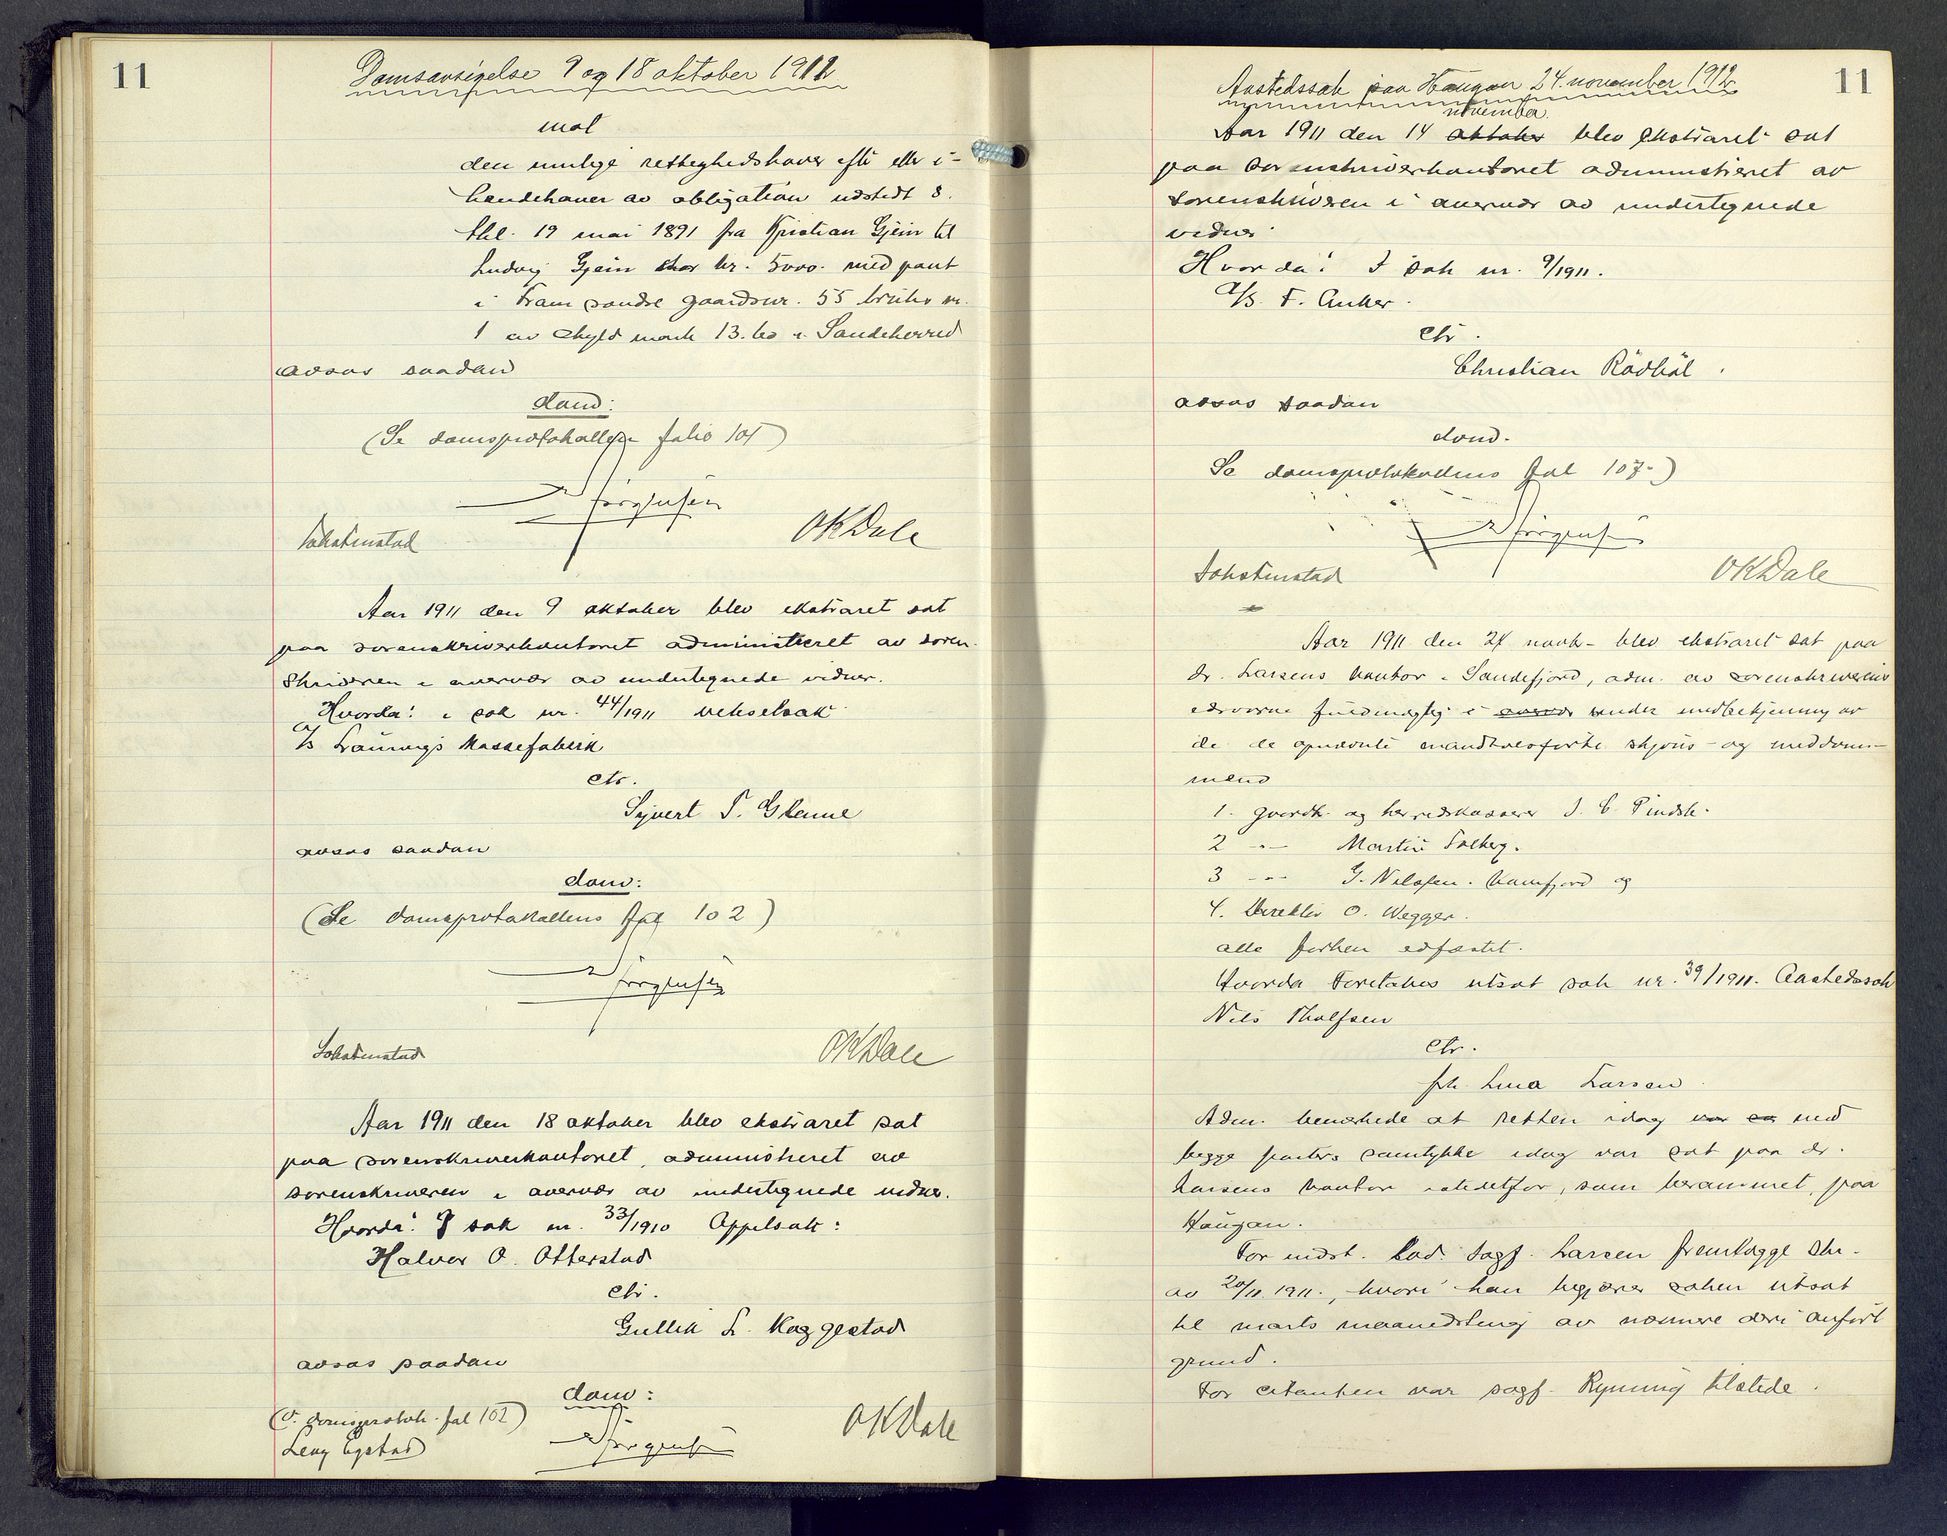 11
Domsavsigelse 9 og 18 oktober 1912
mot
den mulige rettighedshaver efter eller i-
hændehaver av obligation utstedt 8.
thl. 19 mai 1891 fra Kristian Gjein til
Ludvig Gjein stor kr. 5000. med pant
i Fram søndre gaardsnr. 55 bruks nr.
1 av skyld mark 13.60 i Sandeherred
avsas saadan
dom:
(Se domsprotokollen folio 101)
Jørgensen
OKDale
Aar 1911 den 9 oktober blev ekstraret sat
paa sorenskriverkontoret administreret av soren-
skriveren i overvær av undertegnede vidner.
Hvorda: i sak nr. 44/1911 vekselsak
A/S Laurvigs Kassefabrik
ctr.
Syvert T. Glenne
avsas saadan
dom:
(Se domsprotokollens fol 102)
Jørgensen
OKDale
Aar 1911 den 18 oktober blev ekstraret sat
paa sorenskriverkontoret, administreret av
sorenskriveren i overvær av undertegnede vidner.
Hvorda: I sak nr. 33/1910 Appelsak:
Halvor O. Otterstad
ctr.
Gullik L. Kaggestad
avsas saadan
dom:
(v. domsprotok. fol 102)
OKDale
Jørgensen
11
Aastedssak paa Haugan 24. november 1912
november
Aar 1911 den 14 oktober blev ekstraret sat
paa sorenskriverkontoret administreret av
sorenskriveren i overvær av undertegnede
vidner
Hvorda: I sak nr. 9/1911.
A/S. F. Anker.
ctr.
Christian Rödböl.
avsas saadan
dom.
Se domsprotokollens fol 107.)
Jørgensen
OKDale
Aar 1911 den 24 novbr. blev ekstraret sat paa
dr. Larsens kontor i Sandefjord, adm. av sorenskriverens
edsvorne fuldmægtig i overvær under medbetjening av
de de opnævnte mandtalsførte skjøns- og meddoms-
mænd
1. gaardbr. og herredskasserer J. C. Pindsle.
2 -"- Martin Solberg.
3 -"- G. Nilssen. Kamfjord og
4. Direktør O. Wegger.
alle forhen edfæstet.
Hvorda Foretakes utsat sak nr. 39/1911. Aastedssak
Nils Tholfsen
ctr.
frk. Lina Larsen
Adm. bemerkede at retten idag var sa med
begge parters samtykke idag var sat paa dr.
Larsens kontor istedetfor, som berammet, paa
Haugan.
For indst. Lod. sagf. Larsen fremlagge skr.
av 20/11. 1911., hvori han begjærer saken utsat
til marts maanedsting av nærmere deri anført
grund.
For citanten var sagf. Ryning tilstede.